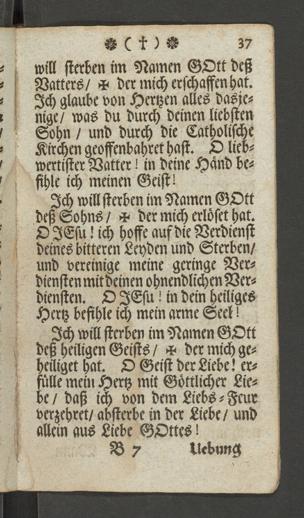 ❁ ( † ) ❁ 37
will sterben im Namen GOtt deß
Vatters / ✠ der mich erschaffen hat.
Ich glaube von Hertzen alles dasje-
nige / was du durch deinen liebsten
Sohn / und durch die Catholische
Kirchen geoffenbahret hast. O lieb-
wertister Vatter ! in deine Händ be-
fihle ich meinen Geist !
Ich will sterben im Namen GOtt
deß Sohns / ✠ der mich erlöset hat.
O JEsu ! ich hoffe auf die Verdienst
deines bitteren Leyden und Sterben /
und vereinige meine geringe Ver-
diensten mit deinen ohnendlichen Ver-
diensten. O JEsu ! in dein heiliges
Hertz befihle ich mein arme Seel !
Ich will sterben im Namen GOtt
deß heiligen Geists / ✠ der mich ge-
heiliget hat. O Geist der Liebe ! er-
fülle mein Hertz mit Göttlicher Lie-
be / daß ich von dem Liebs-Feur
verzehret / absterbe in der Liebe / und
allein aus Liebe GOttes !
B 7 Uebung